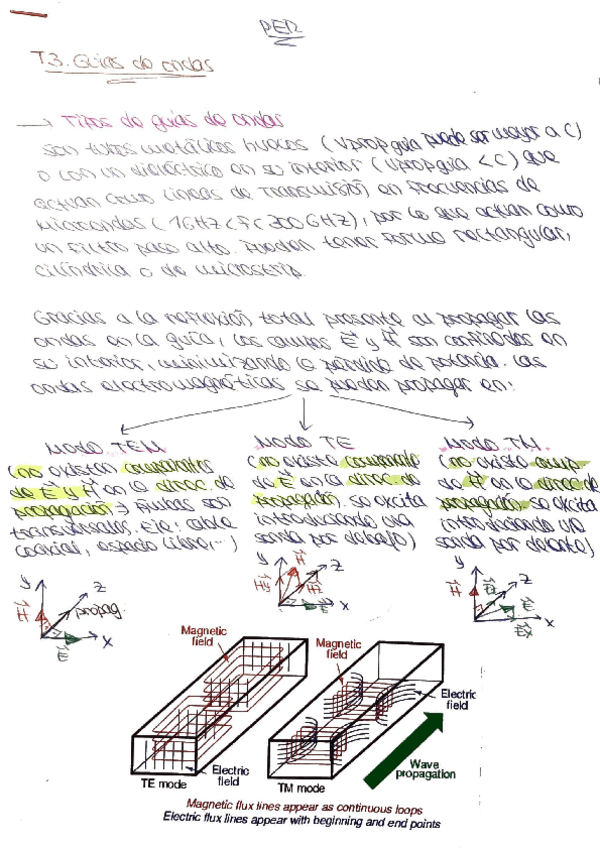 PER
T3. Guías de ondas
→ Tipos de guías de ondas
Son tubos metálicos huecos (Vprop guía puede ser mayor a C)
o con un dieléctrico en su interior (Vprop guía < C) que
actúan como líneas de transmisión en frecuencias de
microondas (1GHz < f < 300 GHz), por lo que actúan como
un filtro paso alto. Pueden tener forma rectangular,
cilíndrica o de microstrip.
Gracias a la reflexión total presente al propagar las
ondas en la guía, los campos E y H son confinados en
su interior, minimizando la pérdida de potencia. Las
ondas electromagnéticas se pueden propagar en:
Modo TEM
(no existen componentes
de E y H en la direcc de
propagación → Ambas son
transversales. Eje: cable
coaxial, espacio libre, ...)
Modo TE
(no existe componente
de E en la direcc de
propagación. Se excita
introduciendo una
sonda por debajo)
Modo TM
(no existe comp.
de H en la direcc de
propagación. Se excita
introduciendo una
sonda por delante)
y
z
H
propag.
x
E
y
H
z
Hy
Hz
x
E
y
z
H
Ez
E
x
Ex
Magnetic field
Magnetic field
Electric field
Electric field
Wave propagation
TE mode
TM mode
Magnetic flux lines appear as continuous loops
Electric flux lines appear with beginning and end points